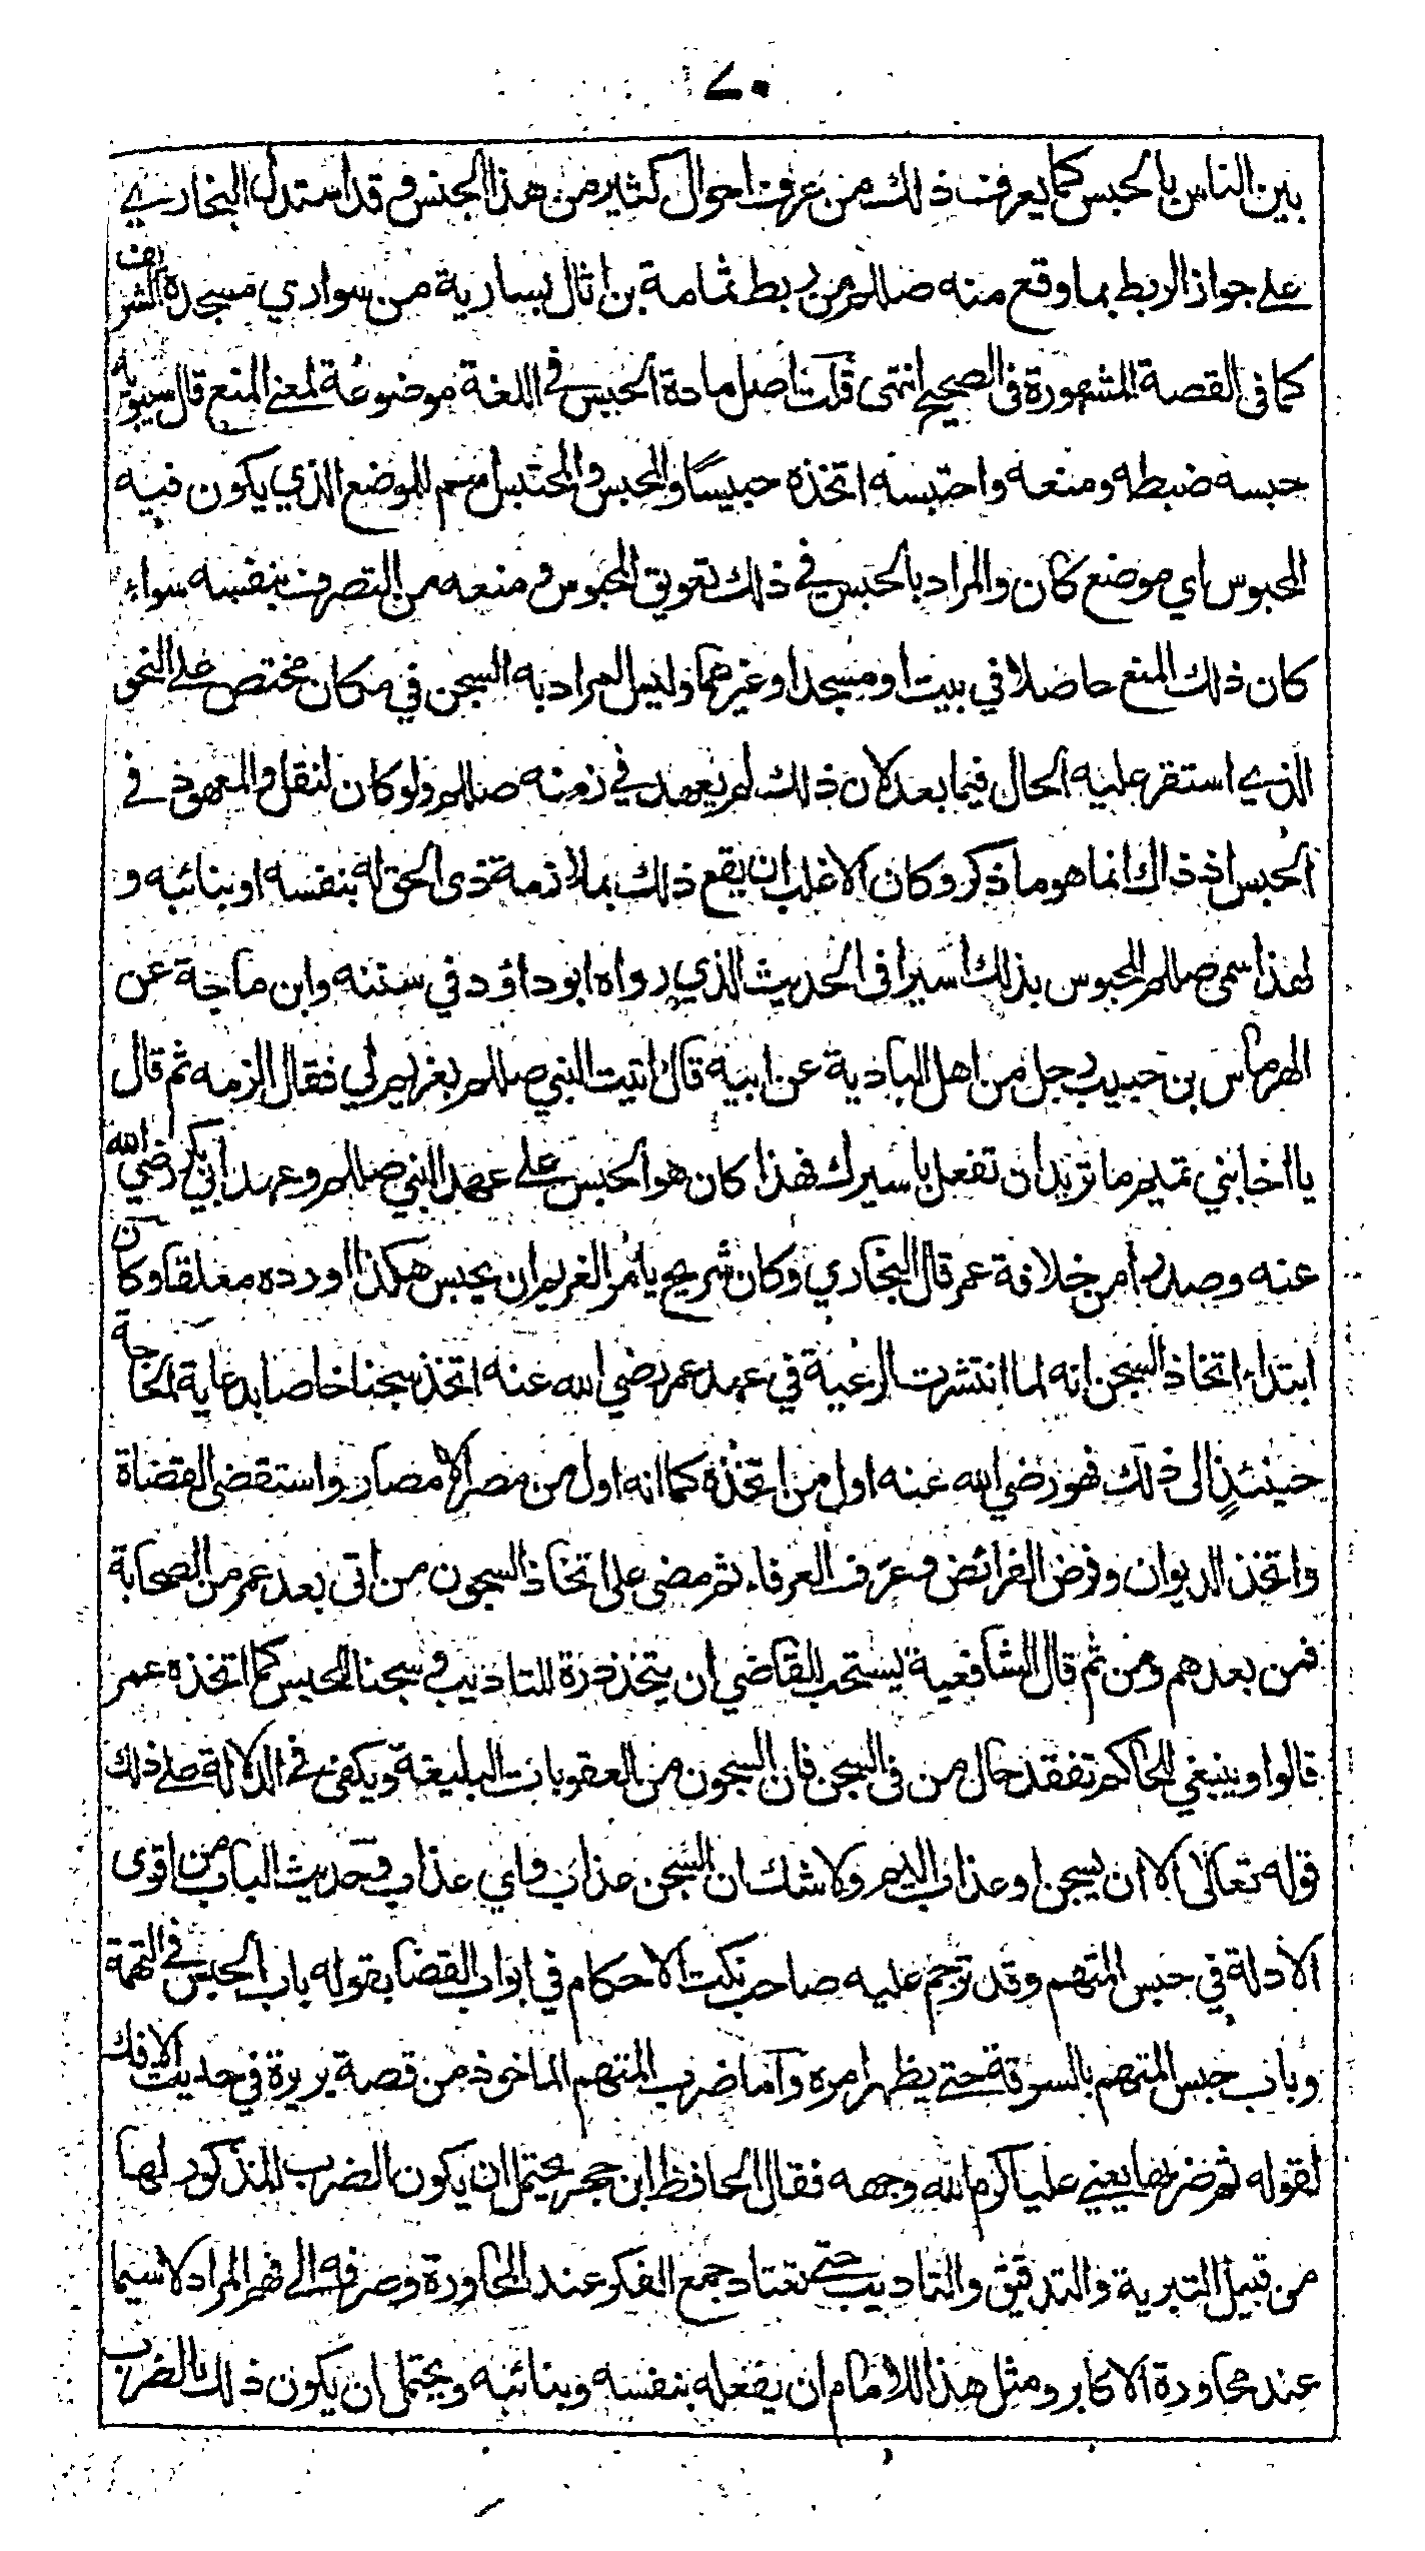 ٤٠
بين الناس بالحبس كما يعرف ذلك من عرف احوال كثير من هذا الجنس و قد استدل البخاري
على جواز الربط بما وقع منه صللم من ربط ثمامة بن اثال بسارية من سواري مسجده الشريف
كما في القصة المشهورة في الصحيح انتهى قلت اصل مادة الحبس في اللغة موضوعة لمعنى المنع قال سيبويه
حبسه ضبطه ومنعه واحتبسه اتخذه حبيسًا والمحبس والمحتبس اسم للموضع الذي يكون فيه
المحبوس اي موضع كان والمراد بالحبس في ذلك تعويق المحبوس و منعه من التصرف بنفسه سواء
كان ذلك المنع حاصلا في بيت او مسجد او غيرهما وليس المراد به السجن في مكان مختص على النحو
الذي استقر عليه الحال فيما بعد لان ذلك لم يعهد في زمنه صللم ولو كان لنقل والمعهود في
الحبس اذ ذاك انما هو ما ذكر وكان الاغلب ان يقع ذلك بملازمة ذى الحق له بنفسه او بنائبه و
لهذا سمى صللم المحبوس بذلك اسيرا في الحديث الذي رواه ابو داؤد في سننه وابن ماجة عن
الهرماس بن حبيب رجل من اهل البادية عن ابيه قال اتيت النبي صللم بغريم لي فقال الزمه ثم قال
يا اخا بني تميم ما تريد ان تفعل باسيرك فهذا كان هو الحبس على عهد النبي صللم و عهد ابي بكر رضي الله
عنه وصدرا من خلافة عمر قال البخاري وكان شريح يأمر الغريم ان يحبس هكذا اورده معلقا وكان
ابتداء اتخاذ السجن انه لما انتشرت الرعية في عهد عمر رضي الله عنه اتخذ سجنا خاصا بدعاية الحاجة
حينئذٍ الى ذلك فهو رضي الله عنه اول من اتخذه كما انه اول من مصر الامصار واستقضى القضاة
واتخذ الديوان وفرض الفرائض و عرّف العرفاء ثم مضى على اتخاذ السجون من اتى بعد عمر من الصحابة
فمن بعدهم ومن ثم قال الشافعية يستحب للقاضي ان يتخذ درة للتاديب و سجنا للحبس كما اتخذه عمر
قالوا وينبغي للحاكم تفقد حال من في السجن فان السجون من العقوبات البليغة ويكفى في الدلالة على ذلك
قوله تعالى الا ان يسجن او عذاب اليم ولا شك ان السجن عذاب واي عذاب و حديث الباب من اقوى
الادلة في حبس المتهم وقد ترجم عليه صاحب نكت الاحكام في ابواب القضا بقوله باب الحبس في التهمة
وباب حبس المتهم بالسرقة حتى يظهر امره وآما ضرب المتهم الماخوذ من قصة بريرة في حديث الافك
لقوله ثم ضربها يعني عليا كرم الله وجهه فقال الحافظ ابن حجر يحتمل ان يكون الضرب المذكور لها
من قبيل التبرية والتدقيق والتاديب حتى تعتاد جمع الفكر عند المحاورة وصرفه الى فهم المراد لاسيما
عند محاورة الاكابر ومثل هذا للامام ان يفعله بنفسه وبنائبه ويحتمل ان يكون ذلك بالضرب